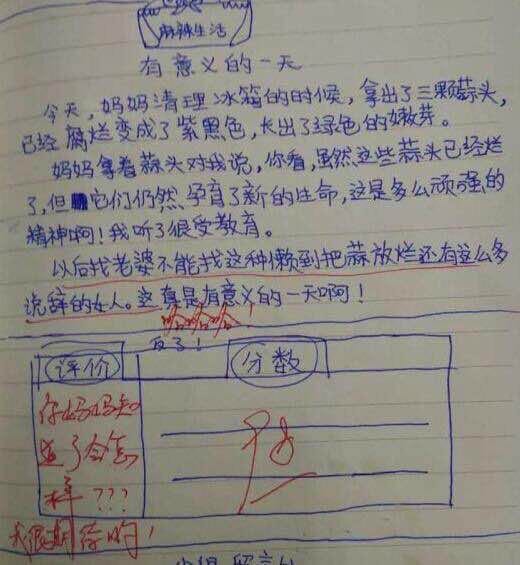 麻辣生活
有意义的一天
今天，妈妈清理冰箱的时候，拿出了三颗蒜头，
已经腐烂变成了紫黑色，长出了绿色的嫩芽。
妈妈拿着蒜头对我说，你看，虽然这些蒜头已经烂
了，但它们仍然孕育了新的生命，这是多么顽强的
精神啊！我听了很受教育。
以后找老婆不能找这种懒到把蒜放烂还有这么多
说辞的女人。这真是有意义的一天啊！
哈哈哈！
反了！
评价
分数
你妈妈知
道了会怎
样？？？
我很期待哟！